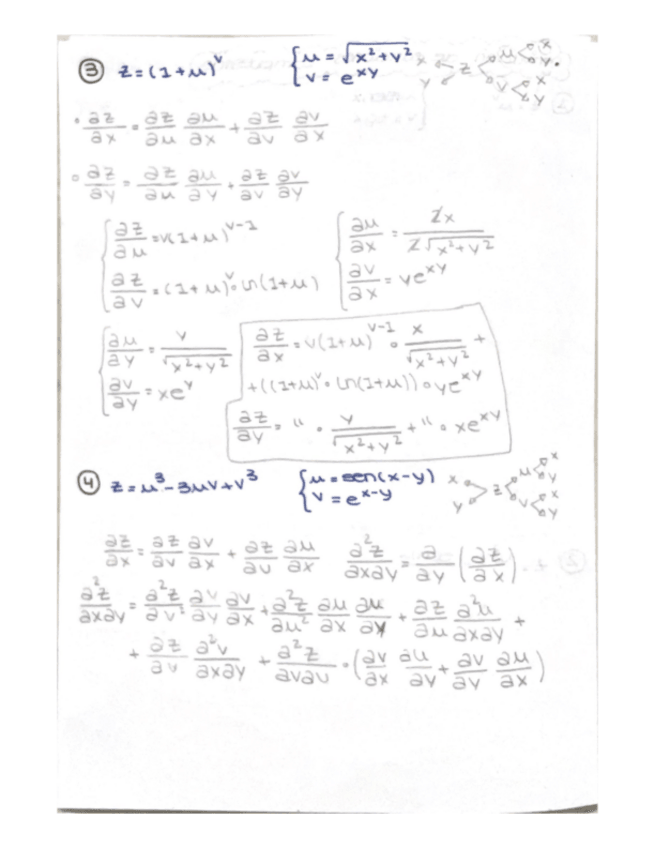 ③ z = (1+u)^v { u = √(x²+y²)
v = e^(xy)
x y z u v x y x y
• ∂z/∂x = ∂z/∂u ∂u/∂x + ∂z/∂v ∂v/∂x
• ∂z/∂y = ∂z/∂u ∂u/∂y + ∂z/∂v ∂v/∂y
{ ∂z/∂u = v(1+u)^(v-1)
∂z/∂v = (1+u)^v · ln(1+u)
{ ∂u/∂x = 2x / 2√(x²+y²)
∂v/∂x = ye^(xy)
{ ∂u/∂y = y / √(x²+y²)
∂v/∂y = xe^y
∂z/∂x = v(1+u)^(v-1) · x / √(x²+y²) +
+ ((1+u)^v · ln(1+u)) · ye^(xy)
∂z/∂y = " · y / √(x²+y²) + " · xe^(xy)
④ z = u³ - 3uv + v³ { u = sen(x-y)
v = e^(x-y)
x y z u v x y x y
∂z/∂x = ∂z/∂v ∂v/∂x + ∂z/∂u ∂u/∂x ∂²z/∂x∂y = ∂/∂y (∂z/∂x)
∂²z/∂x∂y = ∂²z/∂v² ∂v/∂y ∂v/∂x + ∂²z/∂u² ∂u/∂x ∂u/∂y + ∂z/∂u ∂²u/∂x∂y +
+ ∂z/∂v ∂²v/∂x∂y + ∂²z/∂v∂u · (∂v/∂x ∂u/∂y + ∂v/∂y ∂u/∂x)